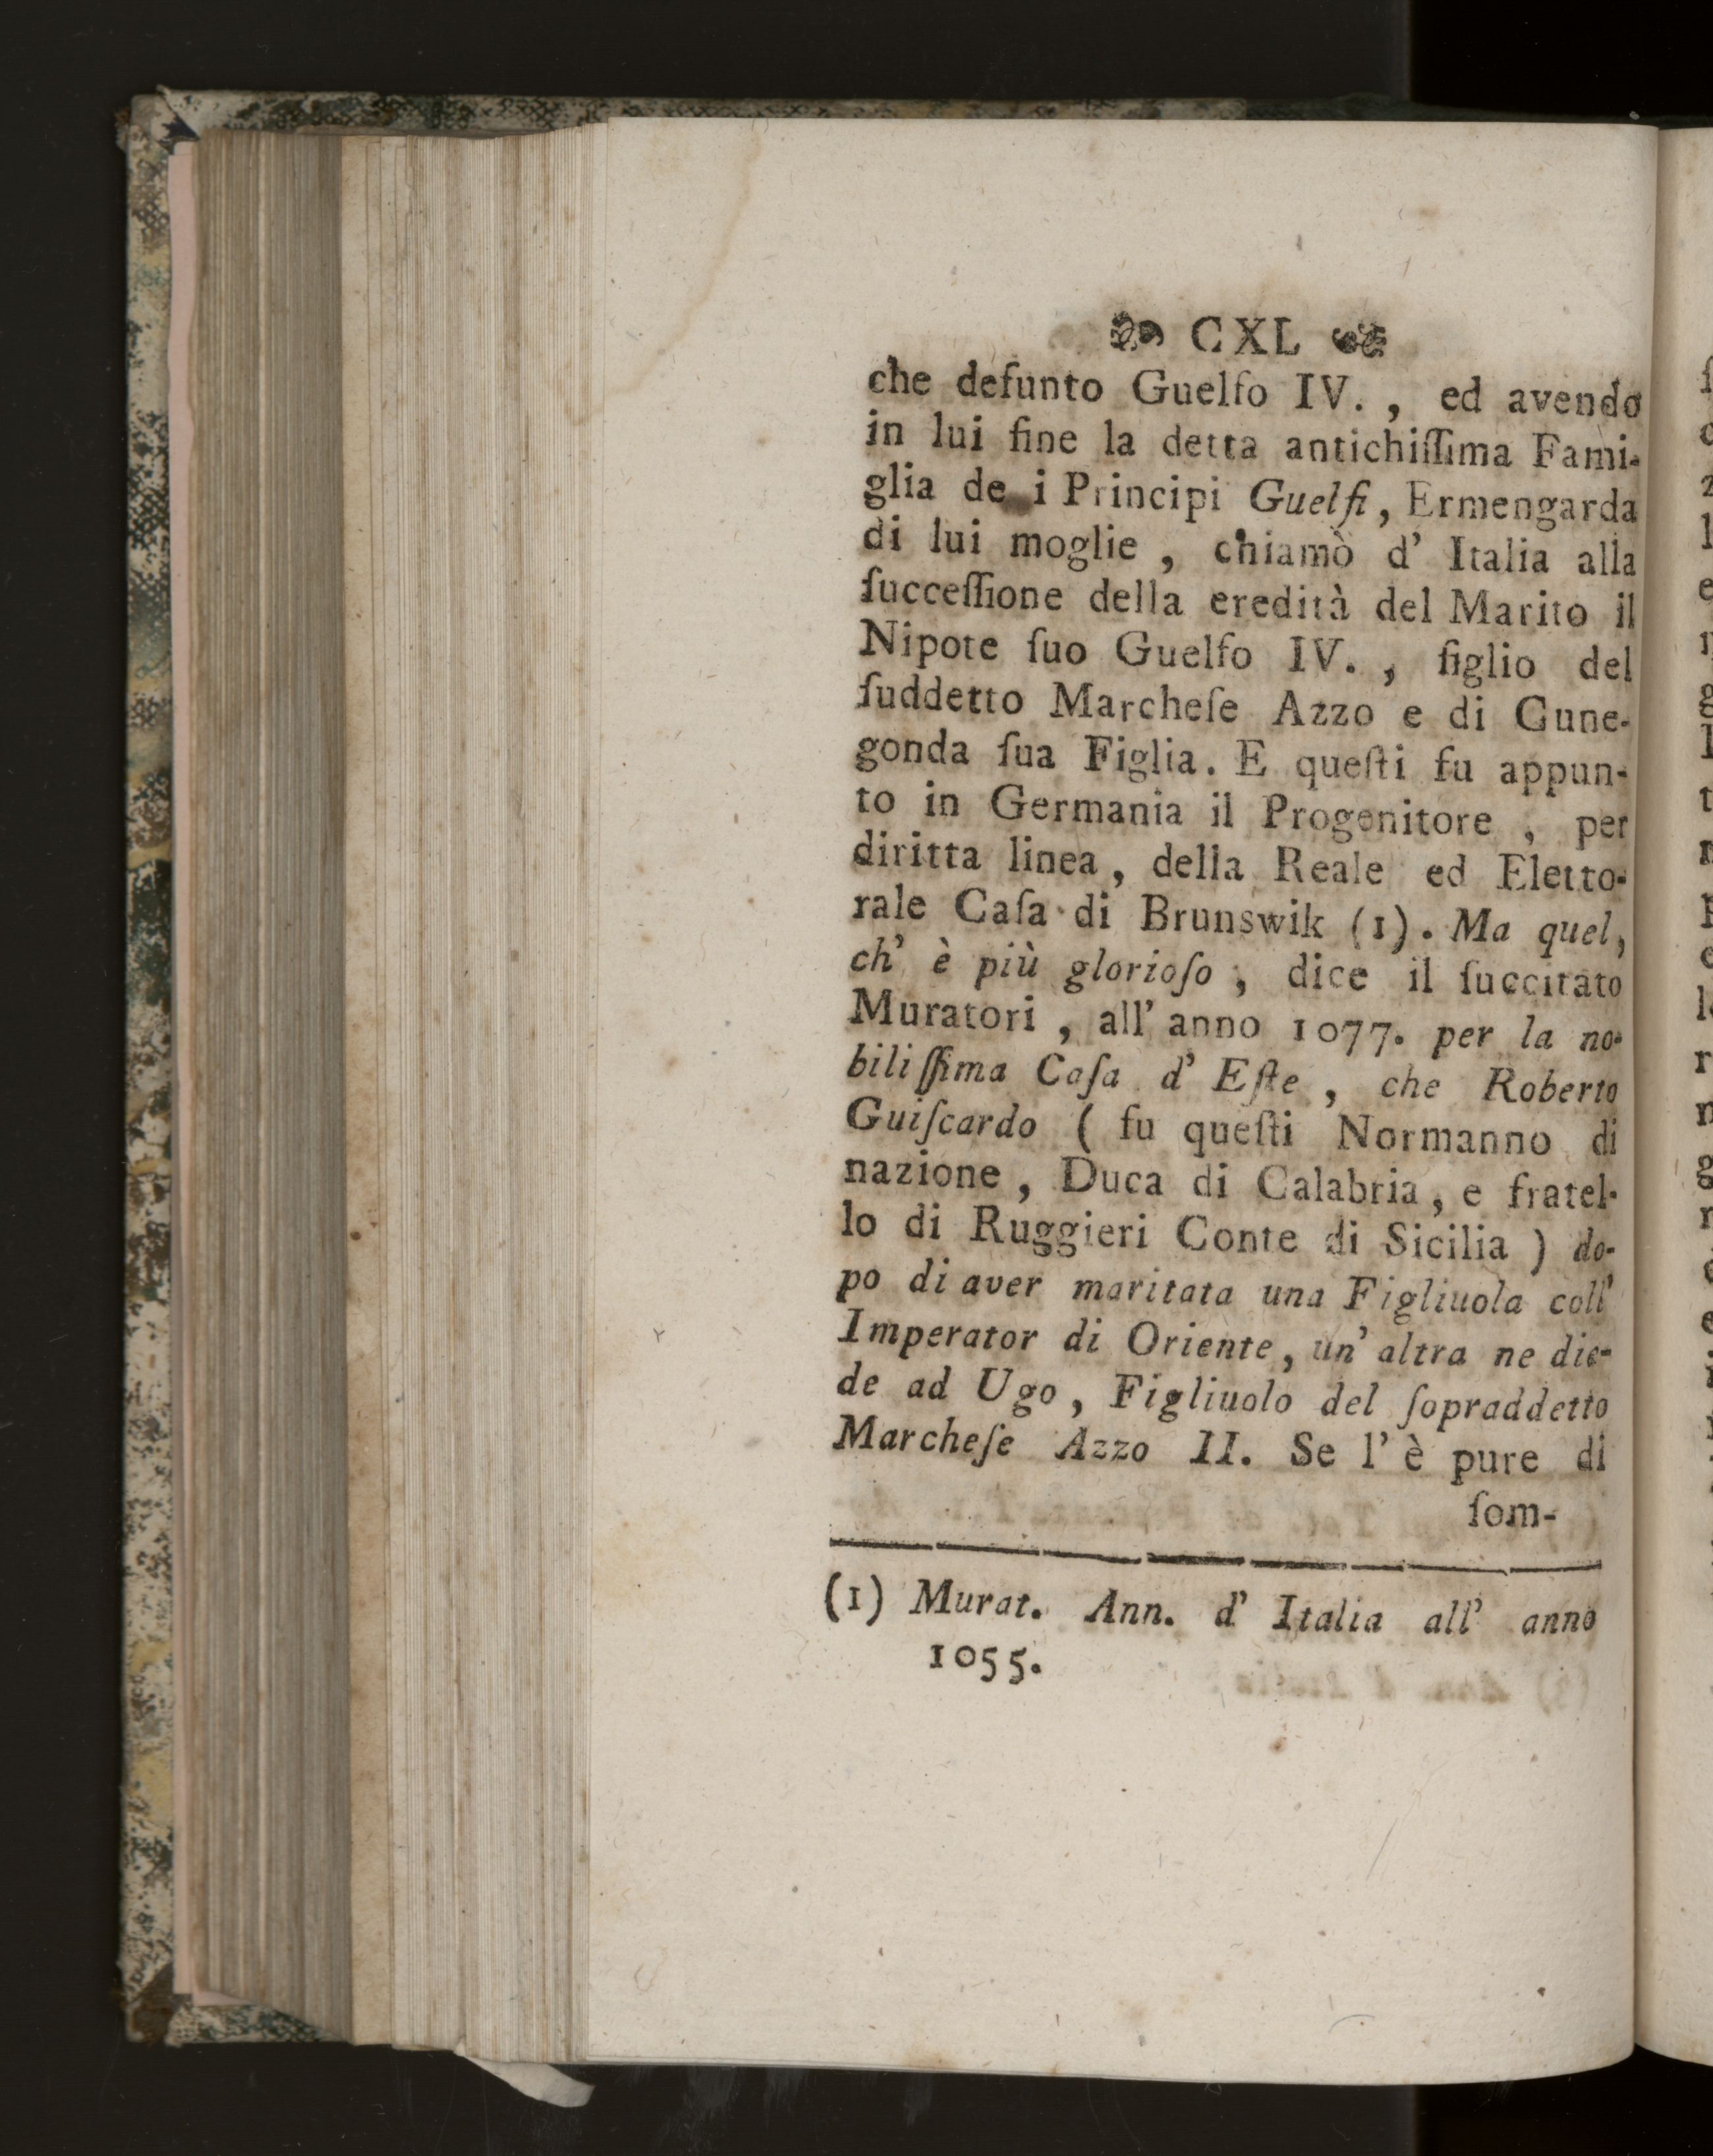 CXL
che defunto Guelfo IV. , ed avendo
in lui fine la detta antichiſſima Fami-
glia de i Principi Guelfi, Ermengarda
di lui moglie , chiamò d' Italia alla
ſucceſſione della eredità del Marito il
Nipote ſuo Guelfo IV. , figlio del
ſuddetto Marcheſe Azzo e di Cune-
gonda ſua Figlia. E queſti fu appun-
to in Germania il Progenitore , per
diritta linea, della Reale ed Eletto-
rale Caſa di Brunswik (1). Ma quel,
ch' è più glorioſo , dice il ſuccitato
Muratori , all' anno 1077. per la no-
biliſſima Caſa d' Eſte , che Roberto
Guiſcardo ( fu queſti Normanno di
nazione , Duca di Calabria, e fratel-
lo di Ruggieri Conte di Sicilia ) do-
po di aver maritata una Figliuola coll'
Imperator di Oriente, un' altra ne die-
de ad Ugo, Figliuolo del ſopraddetto
Marcheſe Azzo II. Se l' è pure di
ſom-
(1) Murat. Ann. d' Italia all' anno
1055.